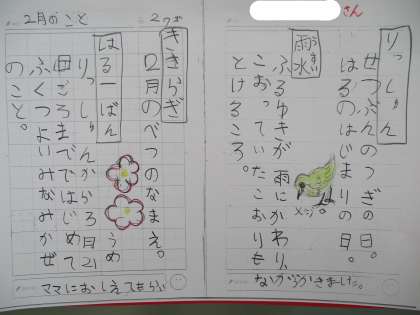 さん
りっしゅん
せつぶんのつぎの日。
はるのはじまりの日。
うすい
雨水
ふるゆきが雨にかわり、
こおっていたこおりも
とけるころ。
2月のこと
きさらぎ
2月のべつのなまえ。
はる一ばん
りっしゅんから3月21
日ごろまではじめて
ふくつよいみなみかぜ
のこと。
うめ
ママにおしえてもらい
ながらかきました。